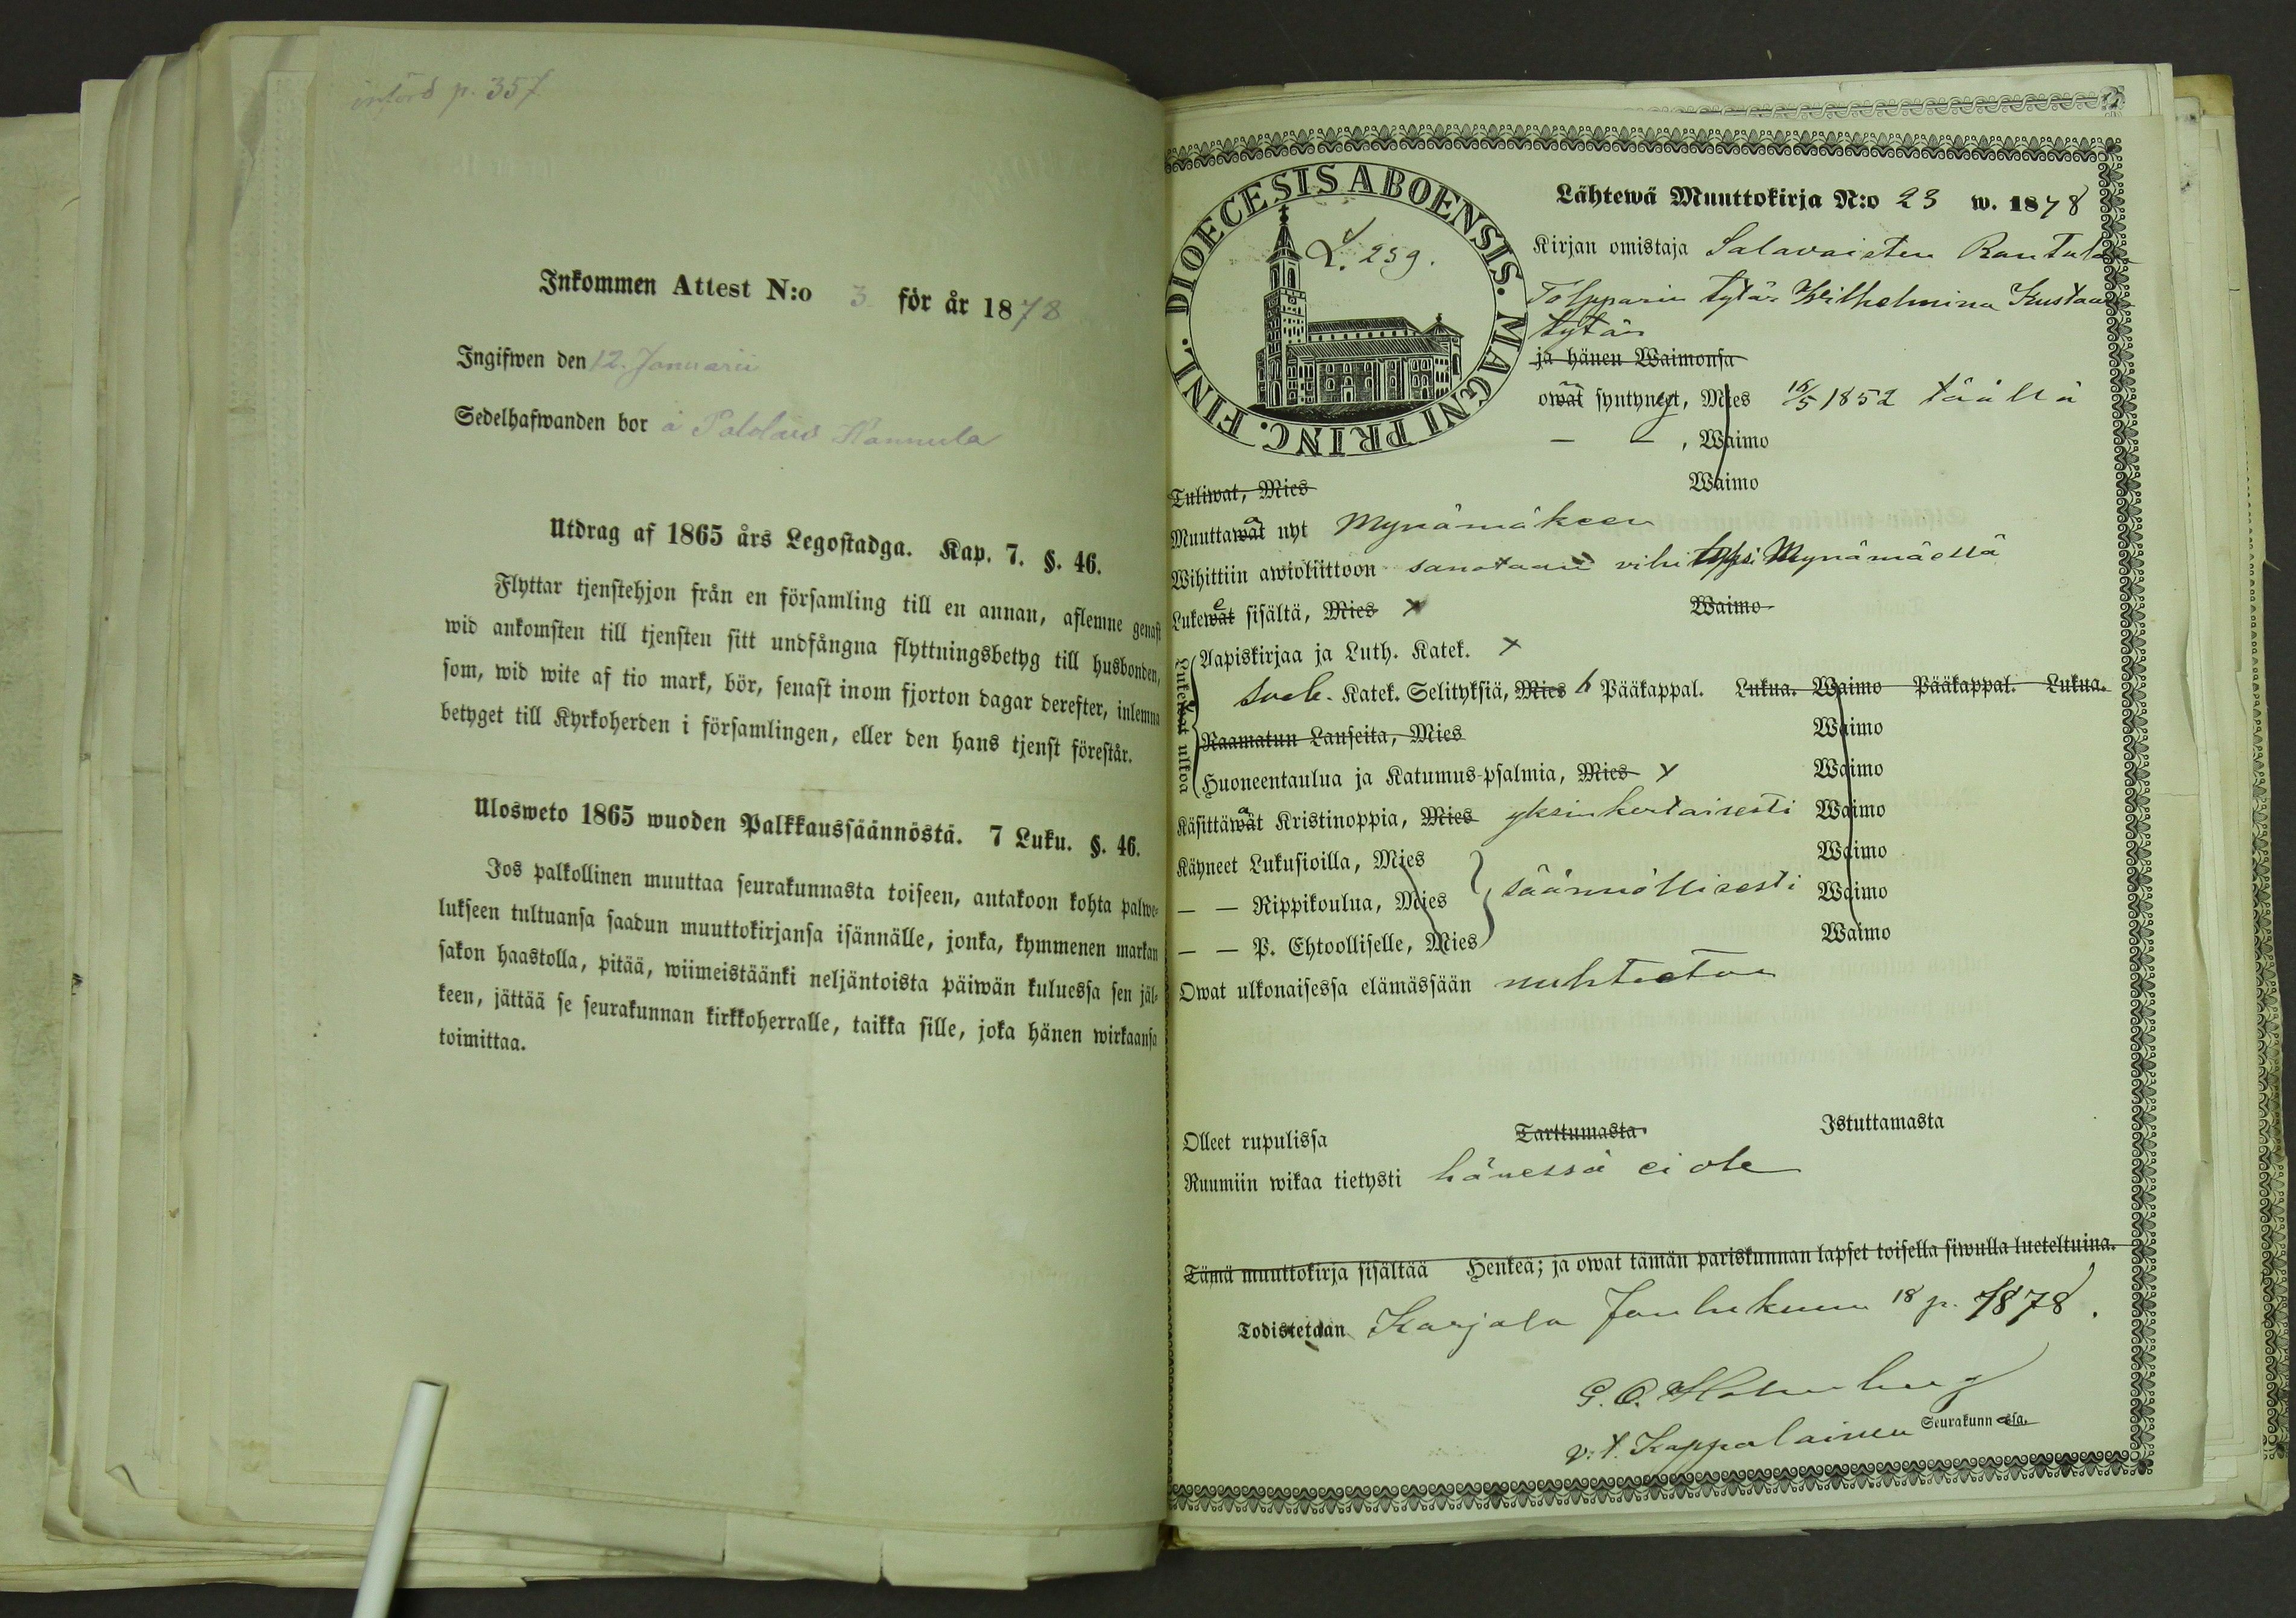 införd p. 357
Inkommen Attest N:o 3 för år 1878
Ingifwen den 12. Januarii
Sedelhafwanden bor å Palolais Hannula
Utdrag af 1865 års Legostadga. Kap. 7. §. 46.
Flyttar tjenstehjon från en församling till en annan, aflemne genast
wid ankomsten till tjensten sitt undfångna flyttningsbetyg till husbonden,
som, wid wite af tio mark, bör, senast inom fjorton dagar derefter, inlemna
betyget till Kyrkoherden i församlingen, eller den hans tjenst förestår.
Ulosweto 1865 wuoden Palkkaussäännöstä. 7 Luku. §. 46.
Jos palkollinen muuttaa seurakunnasta toiseen, antakoon kohta palwe-
lukseen tultuansa saadun muuttokirjansa isännälle, jonka, kymmenen markan
sakon haastolla, pitää, wiimeistäänki neljäntoista päiwän kuluessa sen jäl-
keen, jättää se seurakunnan kirkkoherralle, taikka sille, joka hänen wirkaansa
toimittaa.
DIOECESIS ABOENSIS. MAGNI PRINC. FINL.
L. 259.
Lähtewä Muuttokirja N:o 23 w. 1878
Kirjan omistaja Salavaisten Rantalan
Tölpparin tytär Wilhelmina Kustaan
tytär
ja hänen Waimonsa
owat syntynyt, Mies 16/5 1852 täällä
— — , Waimo
Tuliwat, Mies Waimo
Muuttawat nyt Mynämäkeen
Wihittiin awioliittoon sanotaan vihityksi Mynämäellä
Lukewat sisältä, Mies x Waimo
Lukewat ulkoa
Aapiskirjaa ja Luth. Kateк. x
Sveb. Katek. Selityksiä, Mies 6 Pääkappal. Lukua. Waimo Pääkappal. Lukua.
Raamatun Lauseita, Mies Waimo
Huoneentaulua ja Katumus-psalmia, Mies x Waimo
Käsittäwät Kristinoppia, Mies yksinkertaisesti Waimo
Käyneet Lukusioilla, Mies Waimo
— — Rippikoulua, Mies säännöllisesti Waimo
— — P. Ehtoolliselle, Mies Waimo
Owat ulkonaisessa elämässään nuhteeton
Olleet rupulissa Tarttumasta Istuttamasta
Ruumiin wikaa tietysti hänessä ei ole
Tämä muuttokirja sisältää Henkeä; ja owat tämän pariskunnan lapset toisella siwulla lueteltuina.
Todistetaan Karjala Joulukuun 18 p. 1878.
G. O. Holmberg
v. t. Kappalainen Seurakunnassa.